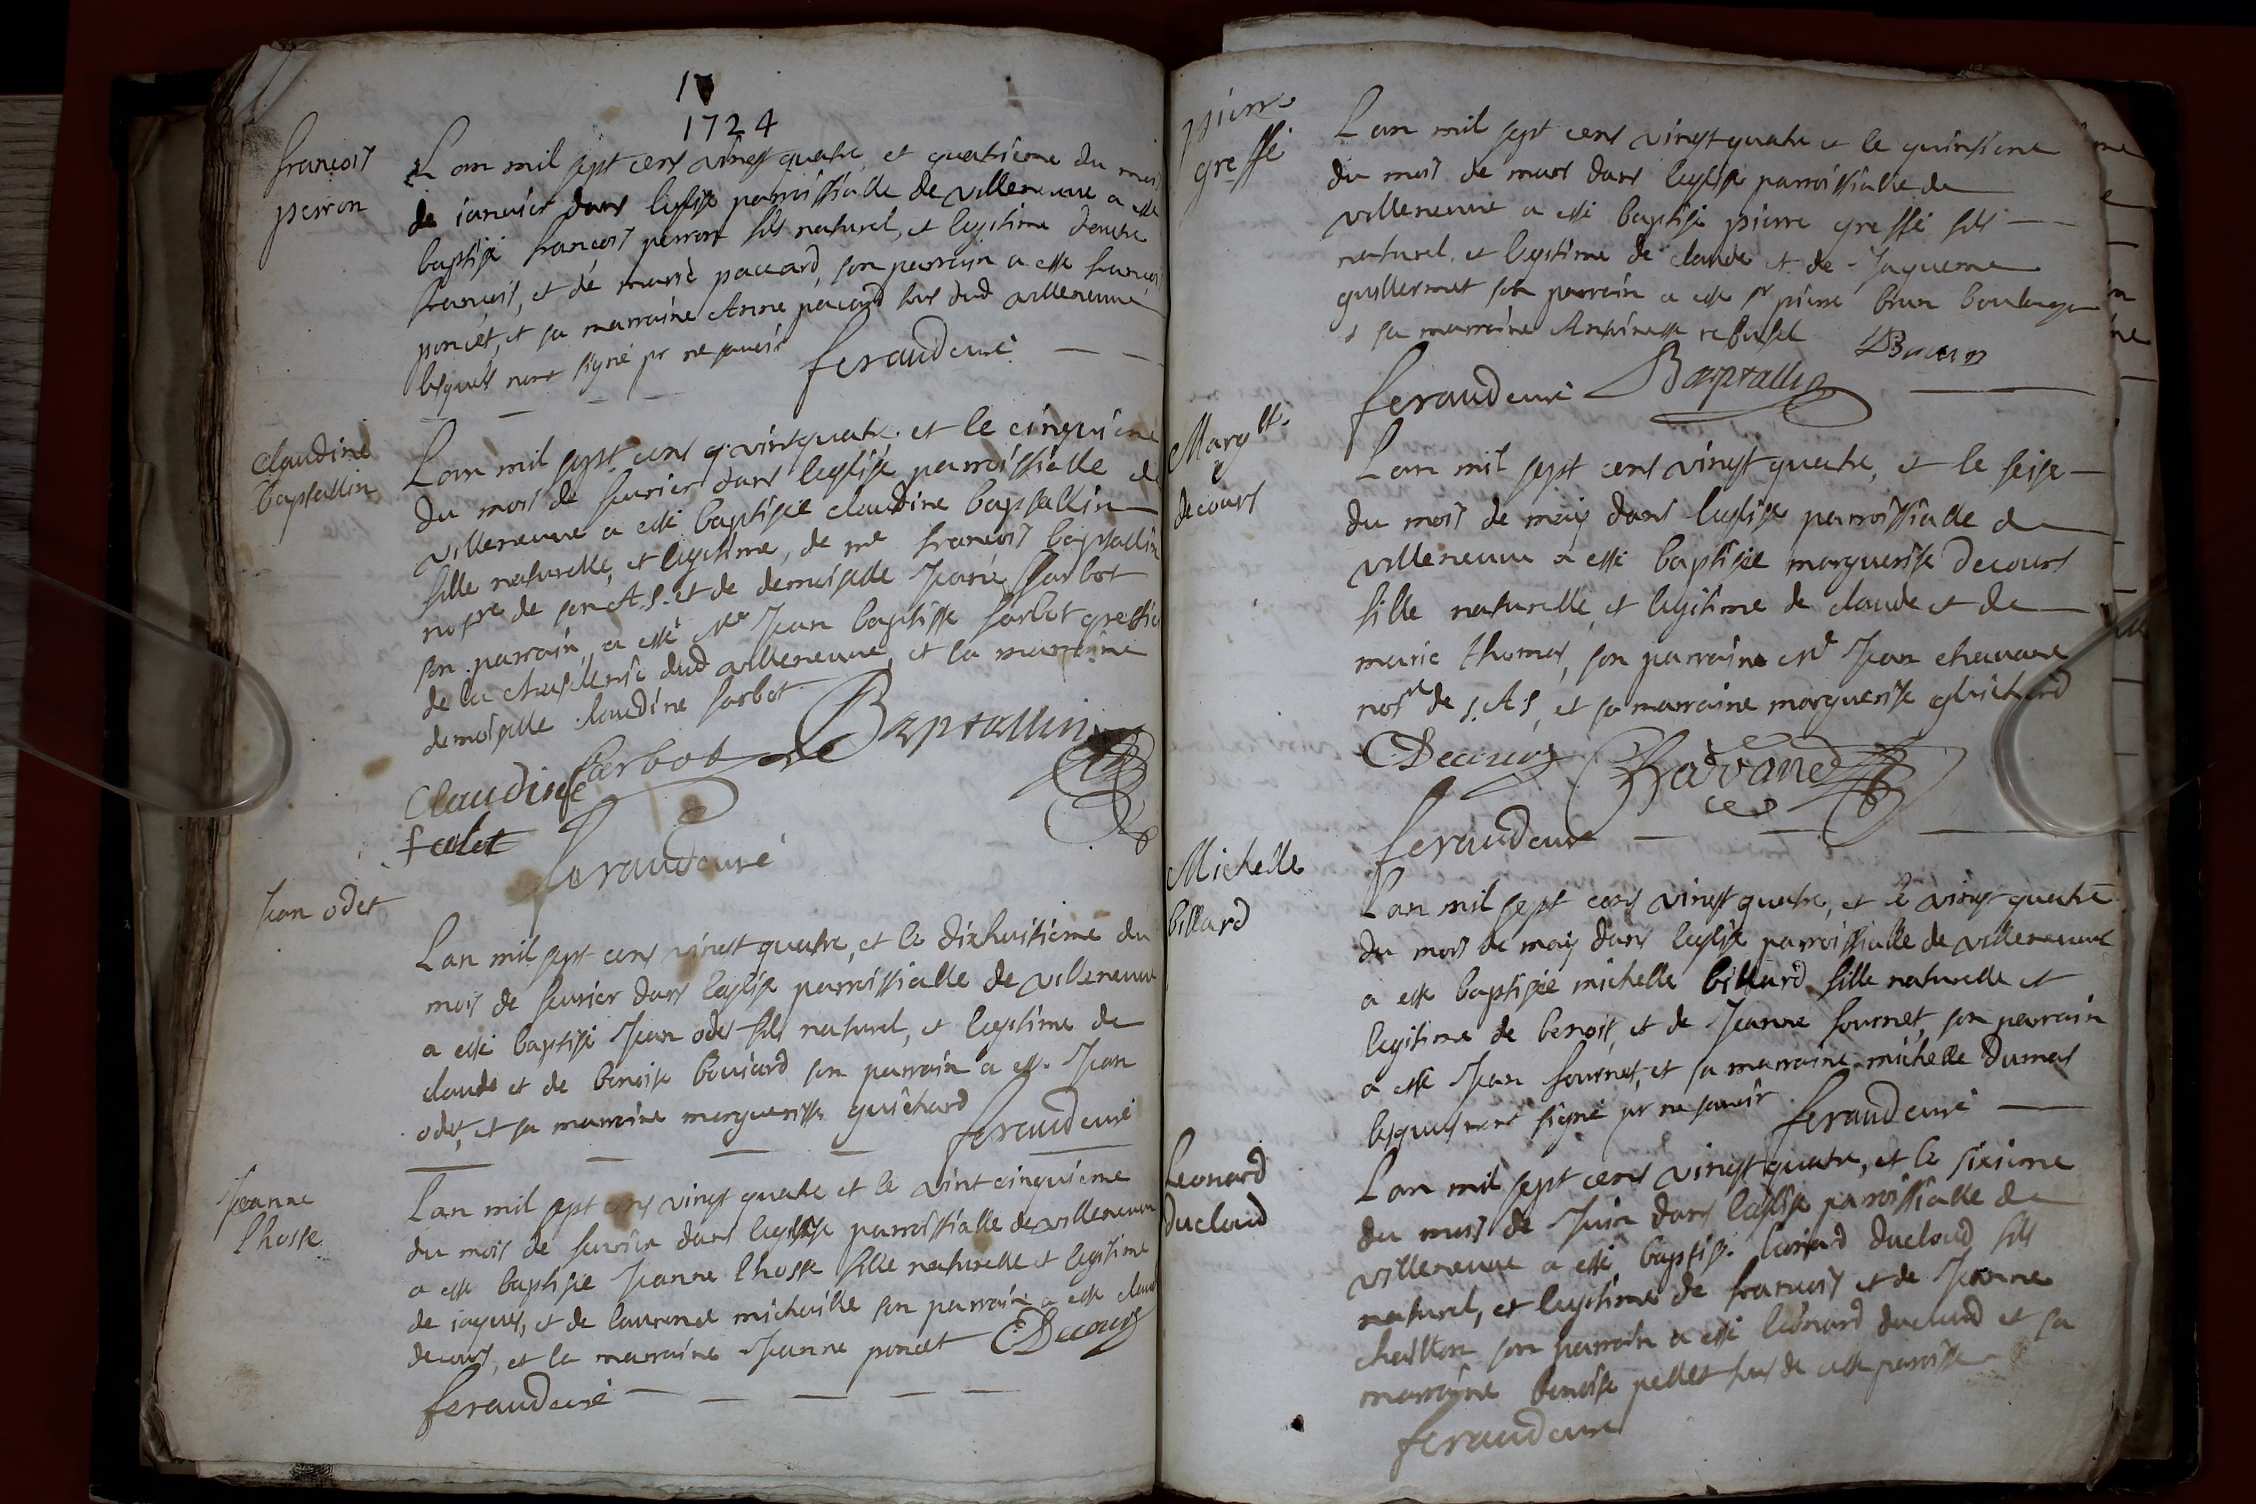 1724
francois
perron
Lan mil sept cens vingt quatre et quatrieme du mois
de ianvier dans leglise parroissialle de villeneuve a esté
baptisé francois perron fils naturel, et legitime dautre
francois, et de marie paccard, son parrain a esté francois
poncet, et sa marraine Anne pacard tous dud villeneuve
lesquels nont signé pr ne scavoir feraud curé
Claudine
baptallin
Lan mil sept cens vint quatre et le cinquieme
du mois de fevrier dans leglise parroissialle de
villeneuve a esté baptisée claudine baptallin
fille naturelle, et legitime, de me francois baptallin
notre de son A.S. et de demoiselle Marie sarbot
son parrain a esté Me Jean baptiste sarbot greffier
de la chastlenie dud villeneuve, et la marraine
demoiselle claudine sarbot
Baptallin
Claudine Sarbot
feraud curé
Jean odet
Lan mil sept cens vingt quatre, et le dixhuitieme du
mois de fevrier dans leglise parroissialle de villeneuve
a esté baptisé Jean odet fils naturel, et legitime de
claude et de benoite bouiard son parrain a esté Jean
odet, et sa marraine margueritte guichard
feraud curé
Jeanne
lhoste
Lan mil sept cens vingt quatre et le vint cinquieme
du mois de fevrier dans leglise parroissialle de villeneuve
a esté baptisée Jeanne lhoste fille naturelle et legitime
de iaques, et de laurence michaille son parrain a esté claude
decours, et la marraine Jeanne poncet CDecours
feraud curé
pierre
greffé
Lan mil sept cens vingt quatre et le quinsieme
du mois de mars dans leglise parroissialle de
villeneuve a esté baptisé pierre greffé fils
naturel, et legitime de claude et de Jaqueme
guillermet son parrain a esté sr pierre brun boulanger
et sa marraine Antoinette
Brun
feraud curé Baptallin
Margtte
decours
Lan mil sept cens vingt quatre, et le seise
du mois de may dans leglise parroissialle de
villeneuve a esté baptisée marguerite decours
fille naturelle, et legitime de claude et de
marie thomas, son parrain Me Jean chavane
notre de S.A.S, et sa marraine marguerite guichard
CDecours Chavane
feraud curé
Michelle
billard
Lan mil sept cens vingt quatre, et le vingt quatre
du mois de may dans leglise parroissialle de villeneuve
a esté baptisée michelle billard fille naturelle et
legitime de benoit, et de Jeanne fournet, son parrain
a esté Jean fournet, et sa marraine michelle dumas
lesquels nont signé pr ne scavoir feraud curé
Leonard
ducloud
Lan mil sept cens vingt quatre, et le sixieme
du mois de Juin dans leglise parroissialle de
villeneuve a esté baptisé leonard ducloud fils
naturel, et legitime de francois et de Jeanne
chaillon son parrain a esté leonard ducloud et sa
marraine benoite pellet tous de cette parroisse
feraud curé